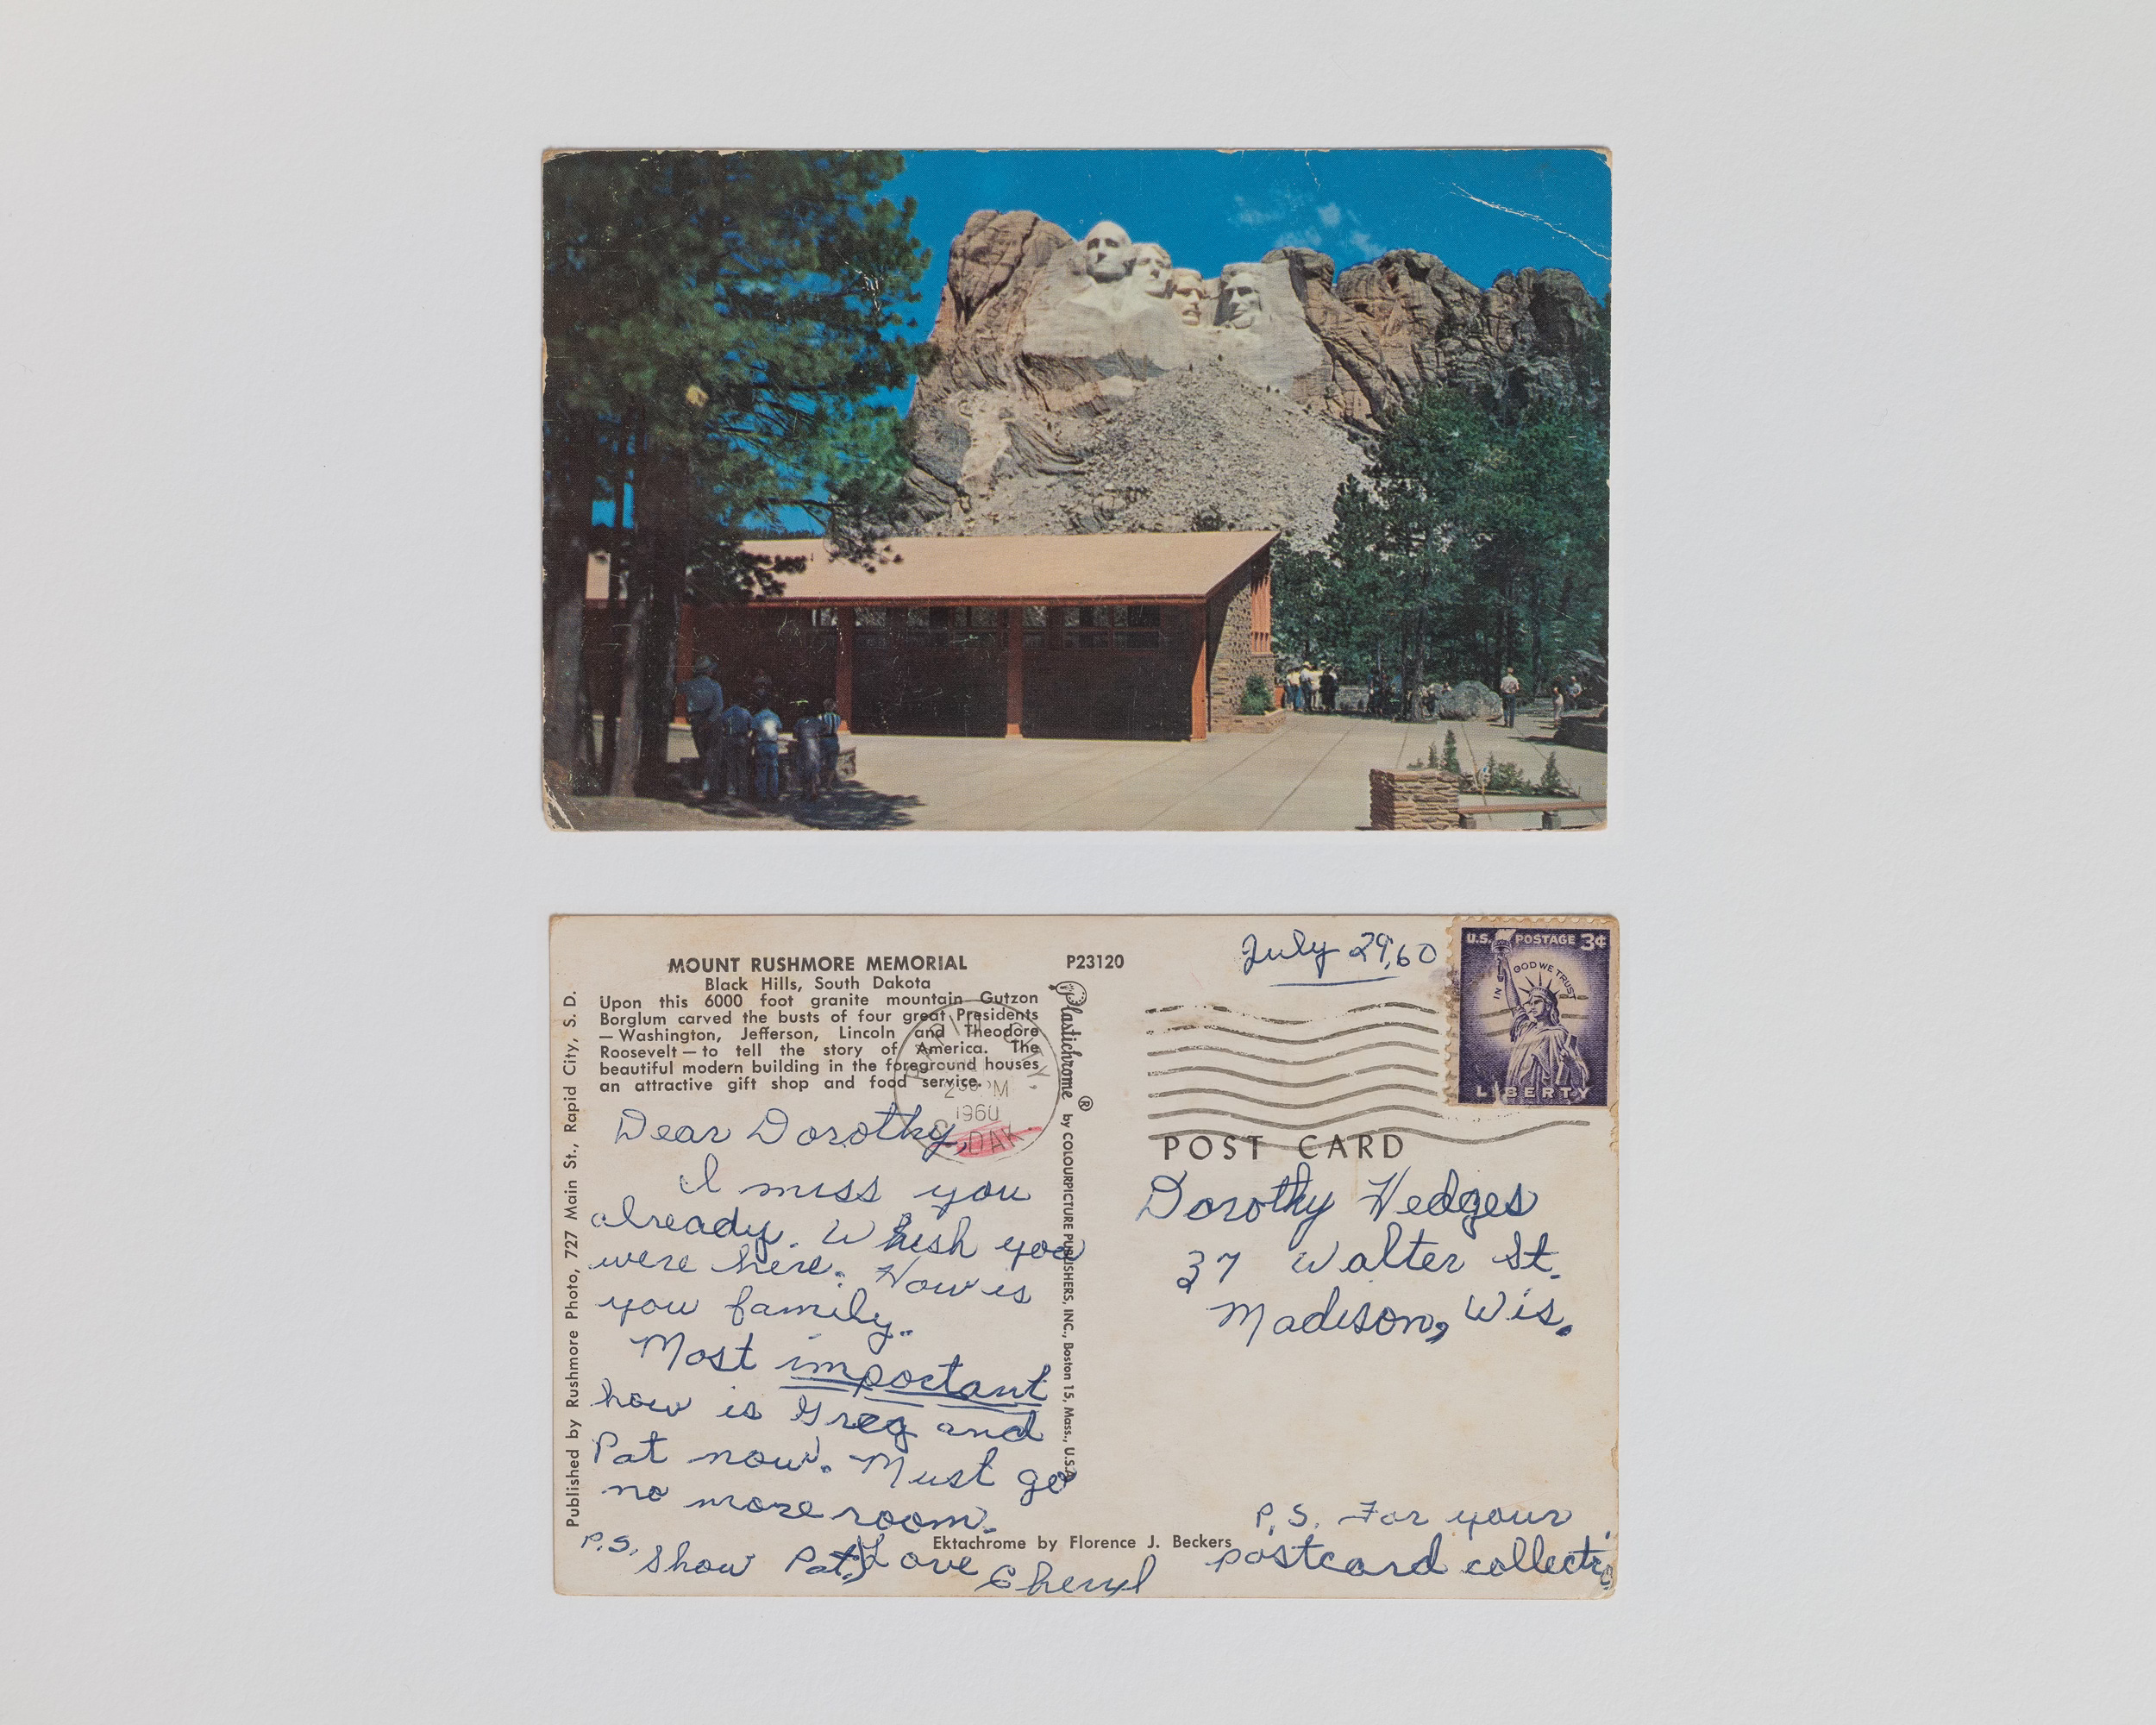 MOUNT RUSHMORE MEMORIAL
Black Hills, South Dakota
Upon this 6000 foot granite mountain Gutzon
Borglum carved the busts of four great Presidents
— Washington, Jefferson, Lincoln and Theodore
Roosevelt — to tell the story of America. The
beautiful modern building in the foreground houses
an attractive gift shop and food service.
P23120
July 29,60
U.S. POSTAGE 3¢
IN GOD WE TRUST
LIBERTY
PM
1960
S. DAK.
Dear Dorothy,
I miss you
already. Whish you
were here. How is
you family.
Most important
how is Greg and
Pat now. Must go
no more room.
P.S. Show Pat.
Love
Cheryl
Published by Rushmore Photo, 727 Main St., Rapid City, S. D.
Plastichrome ® by COLOURPICTURE PUBLISHERS, INC., Boston 15, Mass., U.S.A.
POST CARD
Dorothy Hedges
37 Walter St.
Madison, Wis.
Ektachrome by Florence J. Beckers
P.S. For your
postcard collectio